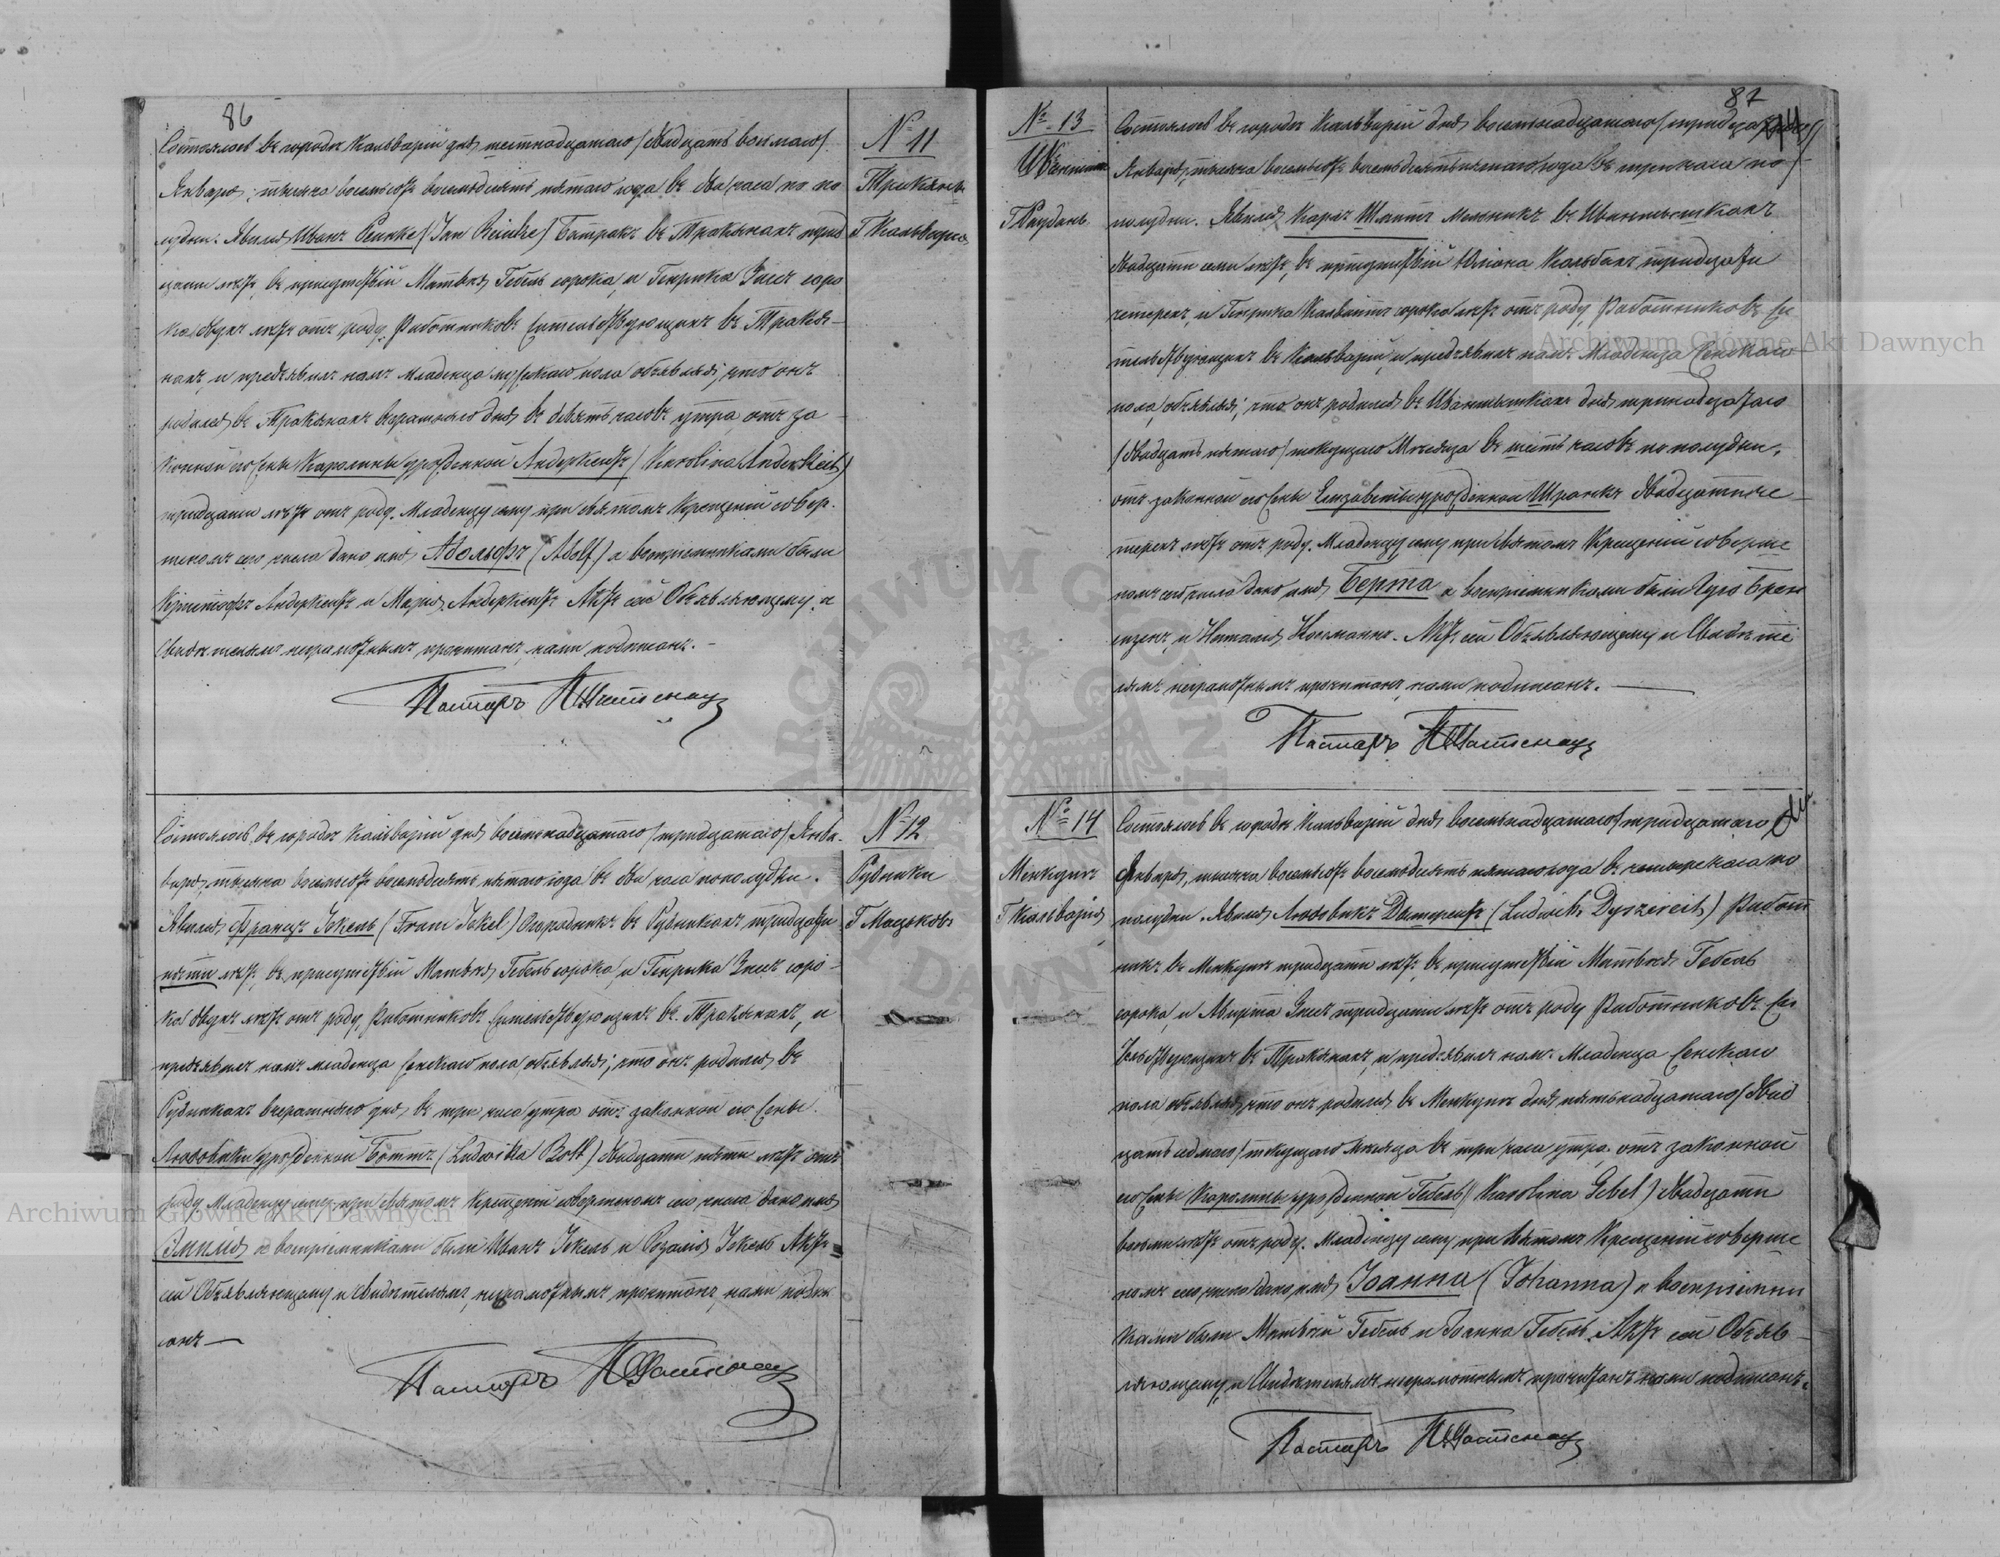 86
Состоялось въ городѣ Кальваріи дня шестнадцатаго /двадцать восьмаго/
Января, тысяча восемьсотъ восемьдесятъ пятаго года въ два часа по по
лудни. Явился Иванъ Реинке /Jan Reinke/ Батракъ въ Тракянахъ
лѣтъ, въ присутствіи Матвея Гебель сорока, и Генрика Зисъ соро
ка двухъ лѣтъ отъ роду, Работниковъ жительствующихъ въ Тракя-
нахъ, и предъявилъ намъ младенца мужескаго пола объявляя, что онъ
родился въ Тракянахъ вчерашняго дня въ девять часовъ утра, отъ за
конной его жены Каролины урожденной Андеркейтъ /Karolina Anderkeit/
тридцати лѣтъ отъ роду. Младенцу сему при святомъ крещеніи совер-
шенномъ сего числа дано имя Адольфъ (Adolf) а воспріемниками были
Кристофъ Андеркейтъ и Марія Андеркейтъ Актъ сей Объявляющему и
Свидѣтелямъ неграмотнымъ прочитанъ, нами подписанъ.-
Пасторъ
№ 11
Тракяны
Г Кальварія
Состоялось въ городѣ Кальваріи дня восемнадцатаго /тридцатаго/ Янва-
ря, тысяча восемьсотъ восемьдесятъ пятаго года въ два часа пополудни.
Явился Францъ Іокель (Franz Jokel) Огородникъ въ Рудникахъ тридцати
пяти лѣтъ, въ присутствіи Матвея Гебель сорока, и Генрика Зисъ соро-
ка двухъ лѣтъ отъ роду, Работниковъ жительствующихъ въ Тракянахъ, и
предъявилъ намъ младенца женскаго пола объявляя, что онъ родился въ
Рудникахъ вчерашняго дня въ три часа утра отъ законной его жены
Людовики урожденной Боттъ (Ludwika Bott) двадцати пяти лѣтъ отъ
роду Младенцу сему при святомъ крещеніи совершенномъ сего числа дано имя
Эмилія а воспріемниками были Иванъ Іокель и Розалія Іокель Актъ
сей Объявляющему и Свидѣтелямъ, неграмотнымъ прочитанъ, нами подпи
санъ —
Пасторъ
№ 12
Рудники
87
№ 13
Состоялось въ городѣ Кальваріи дня восемнадцатаго /тридцатаго/
Января, тысяча восемьсотъ восемьдесятъ пятаго года въ три часа по
полудни. Явился Карлъ Мельникъ въ
двадцати семи лѣтъ, въ присутствіи тридцати
четырехъ, и Генрика сорока лѣтъ отъ роду, Работниковъ жи
тельствующихъ въ Кальваріи, и предъявилъ намъ младенца женскаго
пола, объявляя, что онъ родился въ дня тринадцатаго
/двадцать пятаго/ текущаго Мѣсяца въ шесть часовъ по полудни,
отъ законной его жены Елизаветы урожденной Шранкъ двадцати че
тырехъ лѣтъ отъ роду. Младенцу сему при святомъ Крещеніи соверше
номъ сего числа дано имя Берта а воспріемниками были
и Наталія Актъ сей Объявляющему и Свидѣте
лямъ неграмотнымъ прочитанъ, нами подписанъ. —
Пасторъ
№ 14
Менкупы
Г Кальварія
Состоялось въ городѣ Кальваріи дня восемнадцатаго /тридцатаго/
Января, тысяча восемьсотъ восемьдесятъ пятаго года въ четыре часа по
полудни. Явился Людовикъ Дышерейтъ (Ludwik Dyszereit) Работ
никъ въ Менкупахъ тридцати лѣтъ, въ присутствіи Матвея Гебель
сорока, и Мартина Зисъ тридцати лѣтъ отъ роду Работниковъ жи
тельствующихъ въ Тракянахъ, и предъявилъ намъ Младенца женскаго
пола объявляя, что онъ родился въ Менкупахъ дня пятнадцатаго /двад
цать седмаго/ текущаго Мѣсяца въ три часа утра отъ законной
его жены Каролины урожденной Гебель (Karolina Gebel) двадцати
восьми лѣтъ отъ роду. Младенцу сему при святомъ Крещеніи соверше
номъ сего числа дано имя Іоанна (Johanna) а воспріемни
ками были Матвей Гебель и Іоанна Гебель. Актъ сей Объяв-
ляющему и Свидѣтелямъ неграмотнымъ прочитанъ нами подписанъ.
Пасторъ
Archiwum Główne Akt Dawnych
Archiwum Główne Akt Dawnych